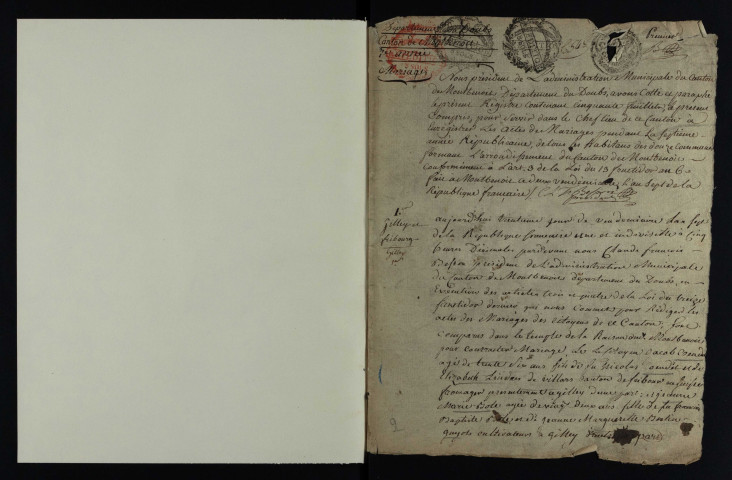 Département du Doubs
Canton de Montbenoit
7e année
Mariages
Premier
Nous président de L'administration Municipale du Canton
de Montbenoit Département du Doubs, avons Cotté et paraphé
le présent Registre contenant cinquante feuillets, le présent
Compris, pour servir dans le Chef lieu de ce Canton à
Enregistrer Les actes de Mariages pendant La septieme
année Républicaine, de tous les habitans des douze communes
formant L'arrondissement du Canton de Montbenoit
Conformément à L'art. 3 de la Loi du 13 fructidor an 6
fait à Montbenoit le deux vendémiaire L'an Sept de la
République française
1er
Gilley et
fribourg
aujourd'hui trentieme jour de vendémiaire L'an sept
de la République francaise une et indivisible à cinq
heures Décimales pardevant nous Claude francois
président de L'administration Municipale
du Canton de Montbenoit Département du Doubs, en
Exécution des articles trois et quatre de la Loi du treize
fructidor dernier qui nous commet pour Rédiger les
actes des Mariages des citoyens de ce Canton, sont
comparus dans le temple de la Raison de Montbenoit
pour contracter Mariage, Les Citoyen Jacob
agé de trente six ans fils de fu Nicolas et de
Elizabeth de villars Canton de fribourg en Suisse
fromager à Gilley d'une part
Marie agée de vingt deux ans fille de fu francois
Baptiste et de Jeanne Marguerite
cultivateurs à Gilley d'autre part
2